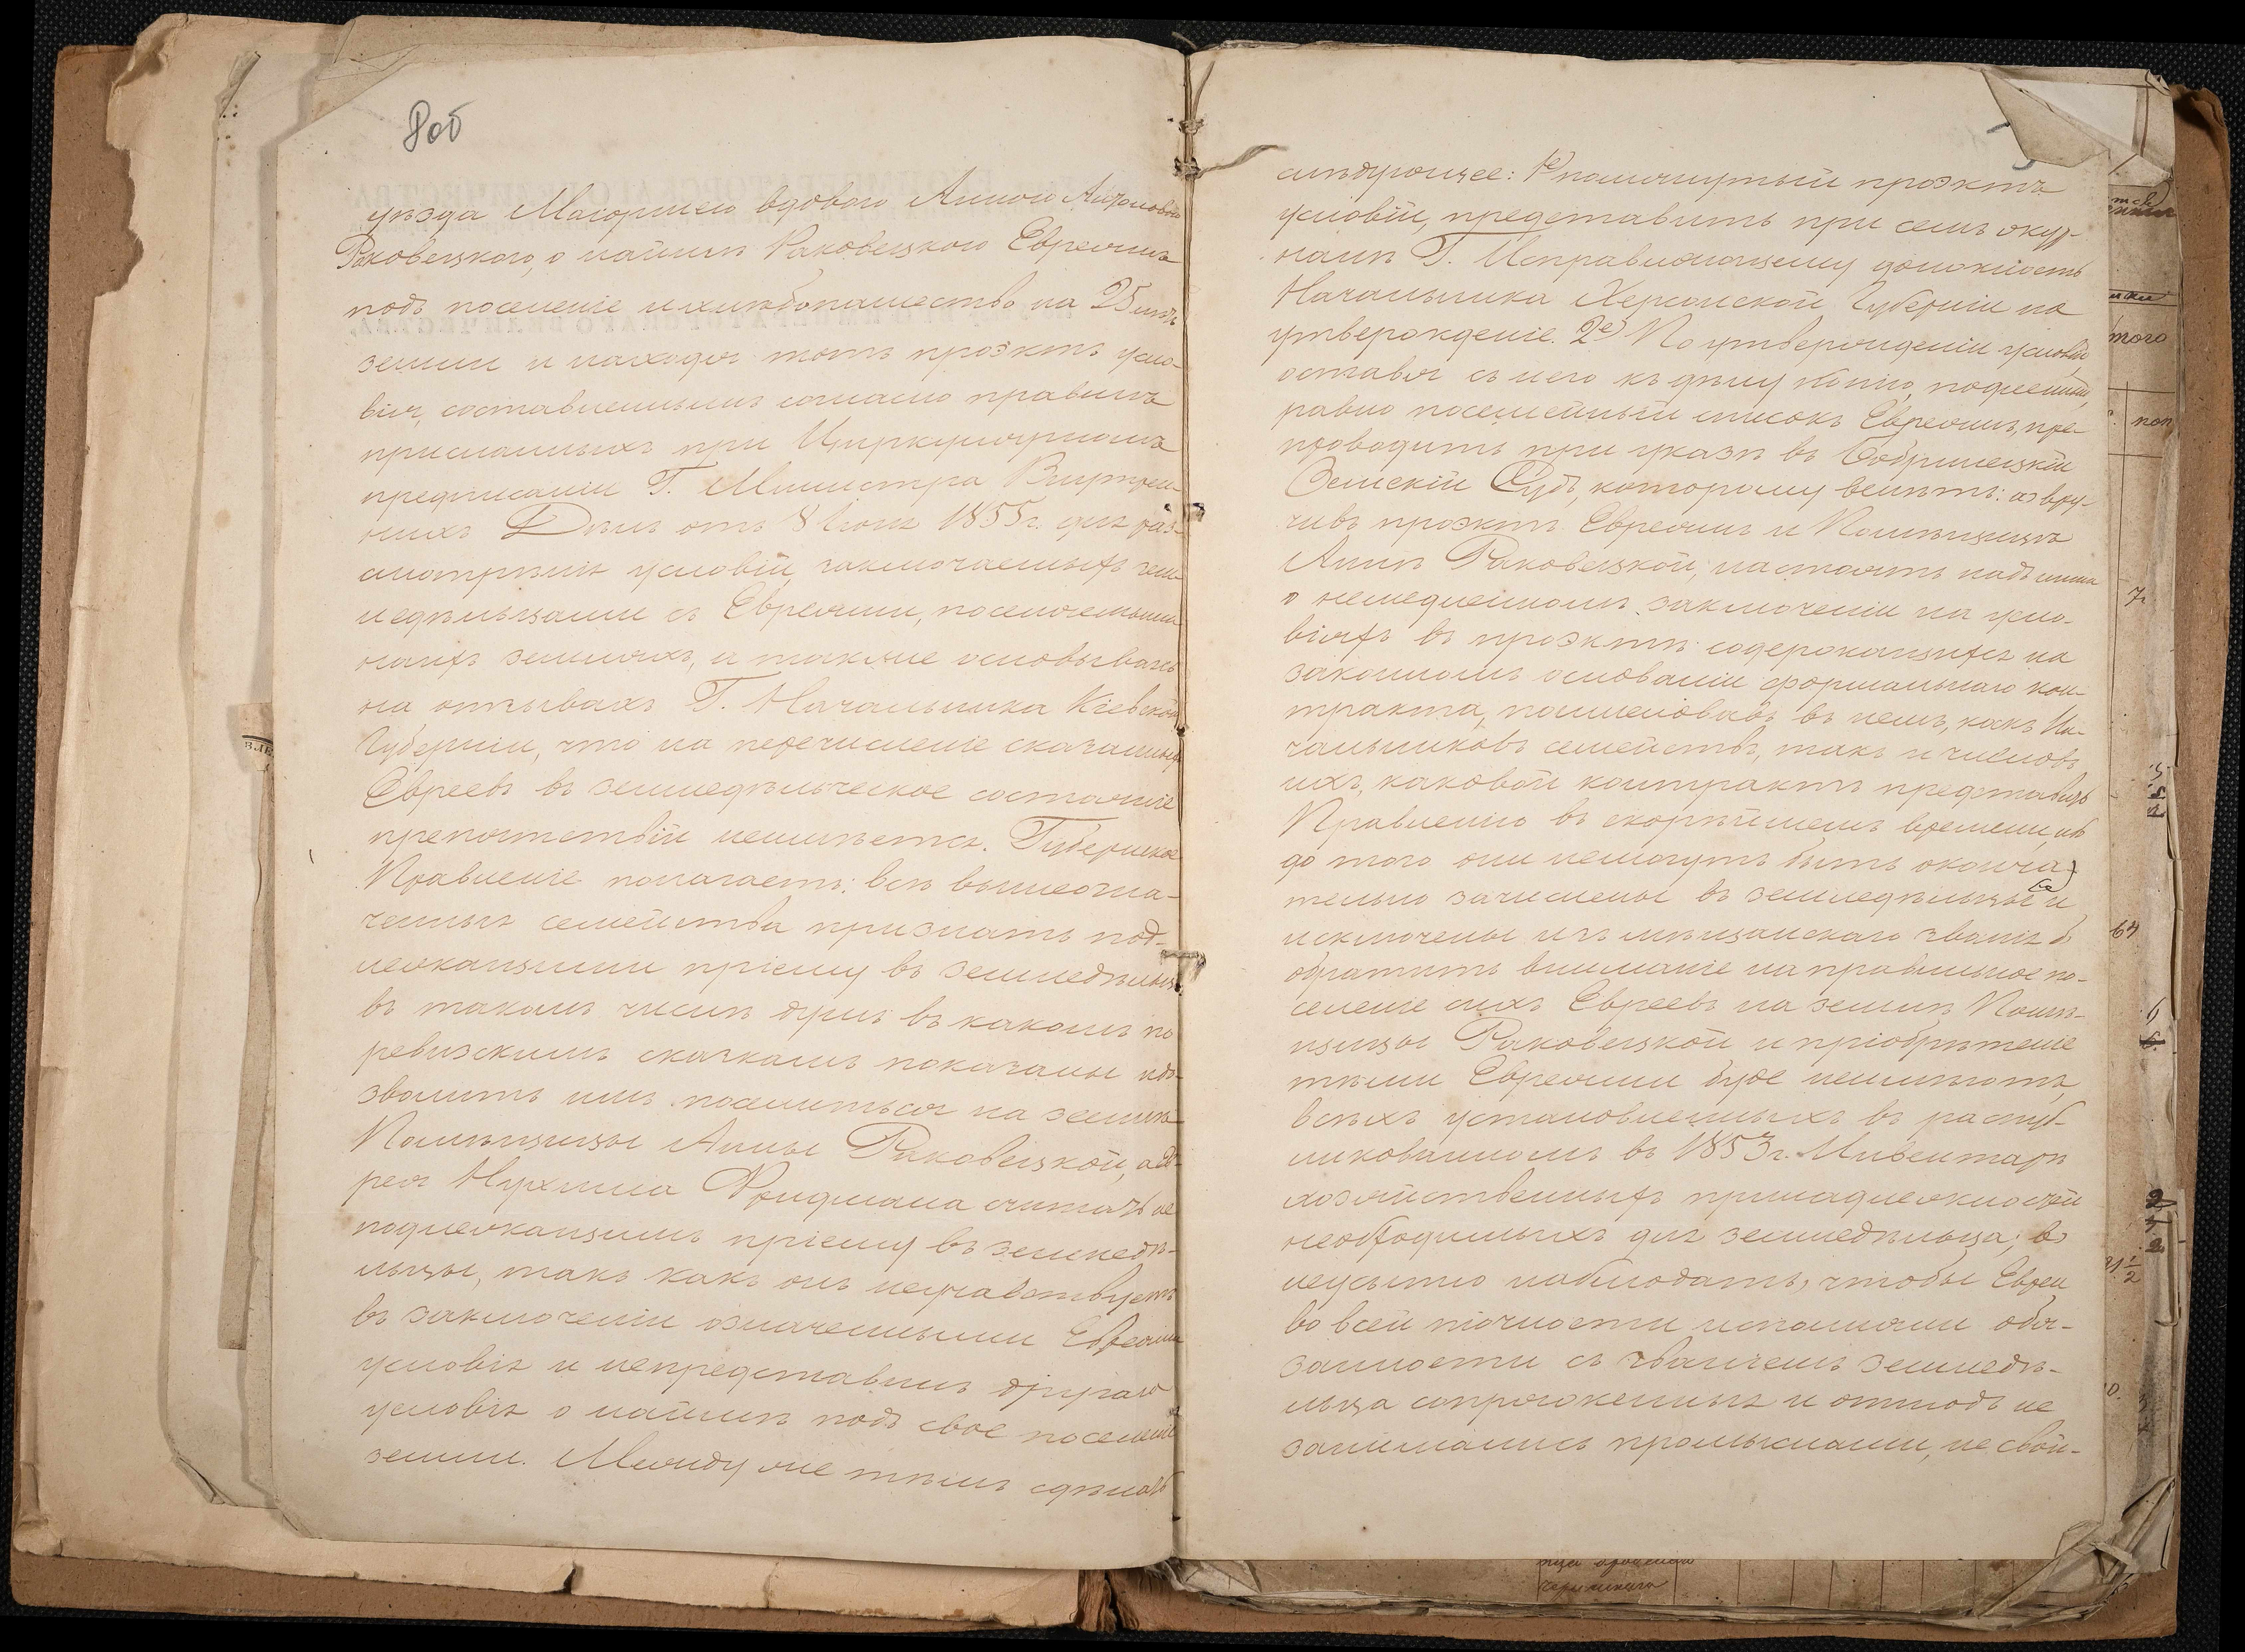 8об
уѣзда Маіоршею вдовою Анною Антоновою
Раковецкого, о наймѣ Раковецкого Евреямъ
подъ поселеніе и хлѣбопашество на 25 лѣтъ
земли и находя тотъ проэктъ усло-
вія, составленнымъ согласно правилъ
присланныхъ при Циркулярномъ
предписаніи Г. Министра Внутрен-
нихъ Дѣлъ отъ 8 Іюля 1855 г. для раз-
смотрѣнія условій, заключаемыхъ зем-
ледѣльцами съ Евреями, поселяемыми
на ихъ земляхъ, а также основываясь
на отзывахъ Г. Начальника Кіевской
Губерніи, что на перечисленіе сказанныхъ
Евреевъ въ земледѣльческое состояніе
препятствій неимѣется. Губернское
Правленіе полагаетъ: всѣ вышеозна-
ченныя семейства признать под-
лежащими пріему въ земледѣльцы
въ такомъ числѣ душъ въ какомъ по
ревизскимъ сказкамъ показаны и до-
зволить имъ поселиться на землѣ
Помѣщицы Анны Раковецкой, а Ев-
рея Нухима Фридмана считать не
подлежащимъ пріему въ земледѣ-
льцы, такъ какъ онъ неучавствуетъ
въ заключеніи означенными Евреями
условія и непредставилъ другаго
условія о наймѣ подъ свое поселеніе
земли. Между же тѣмъ сдѣлать
слѣдующее: 1е) помянутый проэктъ
условій, представить при семъ жур-
налѣ Г. Исправляющему должность
Начальника Херсонской Губерніи на
утвержденіе. 2е) По утвержденіи условій
оставя съ него къ дѣлу копію, подлинный,
равно посемейный списокъ Евреямъ, пре-
проводить при указѣ въ Бобринецкій
Земскій Судъ, которому велѣть: а) вру-
чивъ проэктъ Евреямъ и Помѣщицѣ
Аннѣ Раковецкой, настоять надъ ними
о немедленномъ заключеніи на усло-
віяхъ въ проэктѣ содержащихся на
законномъ основаніи формальнаго кон-
тракта, поименовавъ въ немъ, какъ На-
чальниковъ семействъ, такъ и членовъ
ихъ, каковой контрактъ представить
Правленію въ скорѣйшемъ времени, ибо
до того они немогутъ быть оконча-
тельно зачислены въ земледѣльцы и
исключены изъ мѣщанскаго званія б)
обратить вниманіе на правильное по-
селеніе сихъ Евреевъ на землѣ Помѣ-
щицы Раковецкой и пріобрѣтеніе
тѣми Евреями буде неимѣютъ,
всѣхъ установленныхъ въ распуб-
ликованномъ въ 1853 г. Инвентарѣ
хозяйственныхъ принадлежностей
необходимыхъ для земледѣльца; в)
неусыпно наблюдать, чтобы Евреи
во всей точности исполняли обя-
занности съ званіемъ земледѣ-
льца сопряженныя и отнюдъ не
занимались промыслами, не свой-